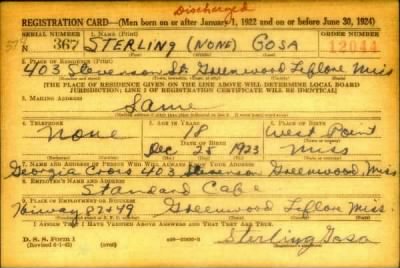 Discharged
REGISTRATION CARD—(Men born on or after January 1, 1922 and on or before June 30, 1924)
SERIAL NUMBER 1. NAME (Print) ORDER NUMBER
N 367 STERLING (NONE) GOSA 12044
(First) (Middle) (Last)
2. PLACE OF RESIDENCE (Print)
403 Stevenson St. Greenwood Leflore Miss
[THE PLACE OF RESIDENCE GIVEN ON THE LINE ABOVE WILL DETERMINE LOCAL BOARD
JURISDICTION; LINE 2 OF REGISTRATION CERTIFICATE WILL BE IDENTICAL]
3. MAILING ADDRESS
Same
4. TELEPHONE 5. AGE IN YEARS 6. PLACE OF BIRTH
None 18 West Point
DATE OF BIRTH
Dec 25 1923 Miss
7. NAME AND ADDRESS OF PERSON WHO WILL ALWAYS KNOW YOUR ADDRESS
Georgia 403 Stevenson Greenwood, Miss
8. EMPLOYER'S NAME AND ADDRESS
Standard Cafe
9. PLACE OF EMPLOYMENT OR BUSINESS
Hiway 82+49 Greenwood Leflore Miss.
I AFFIRM THAT I HAVE VERIFIED ABOVE ANSWERS AND THAT THEY ARE TRUE.
D. S. S. Form 1
Sterling Gosa